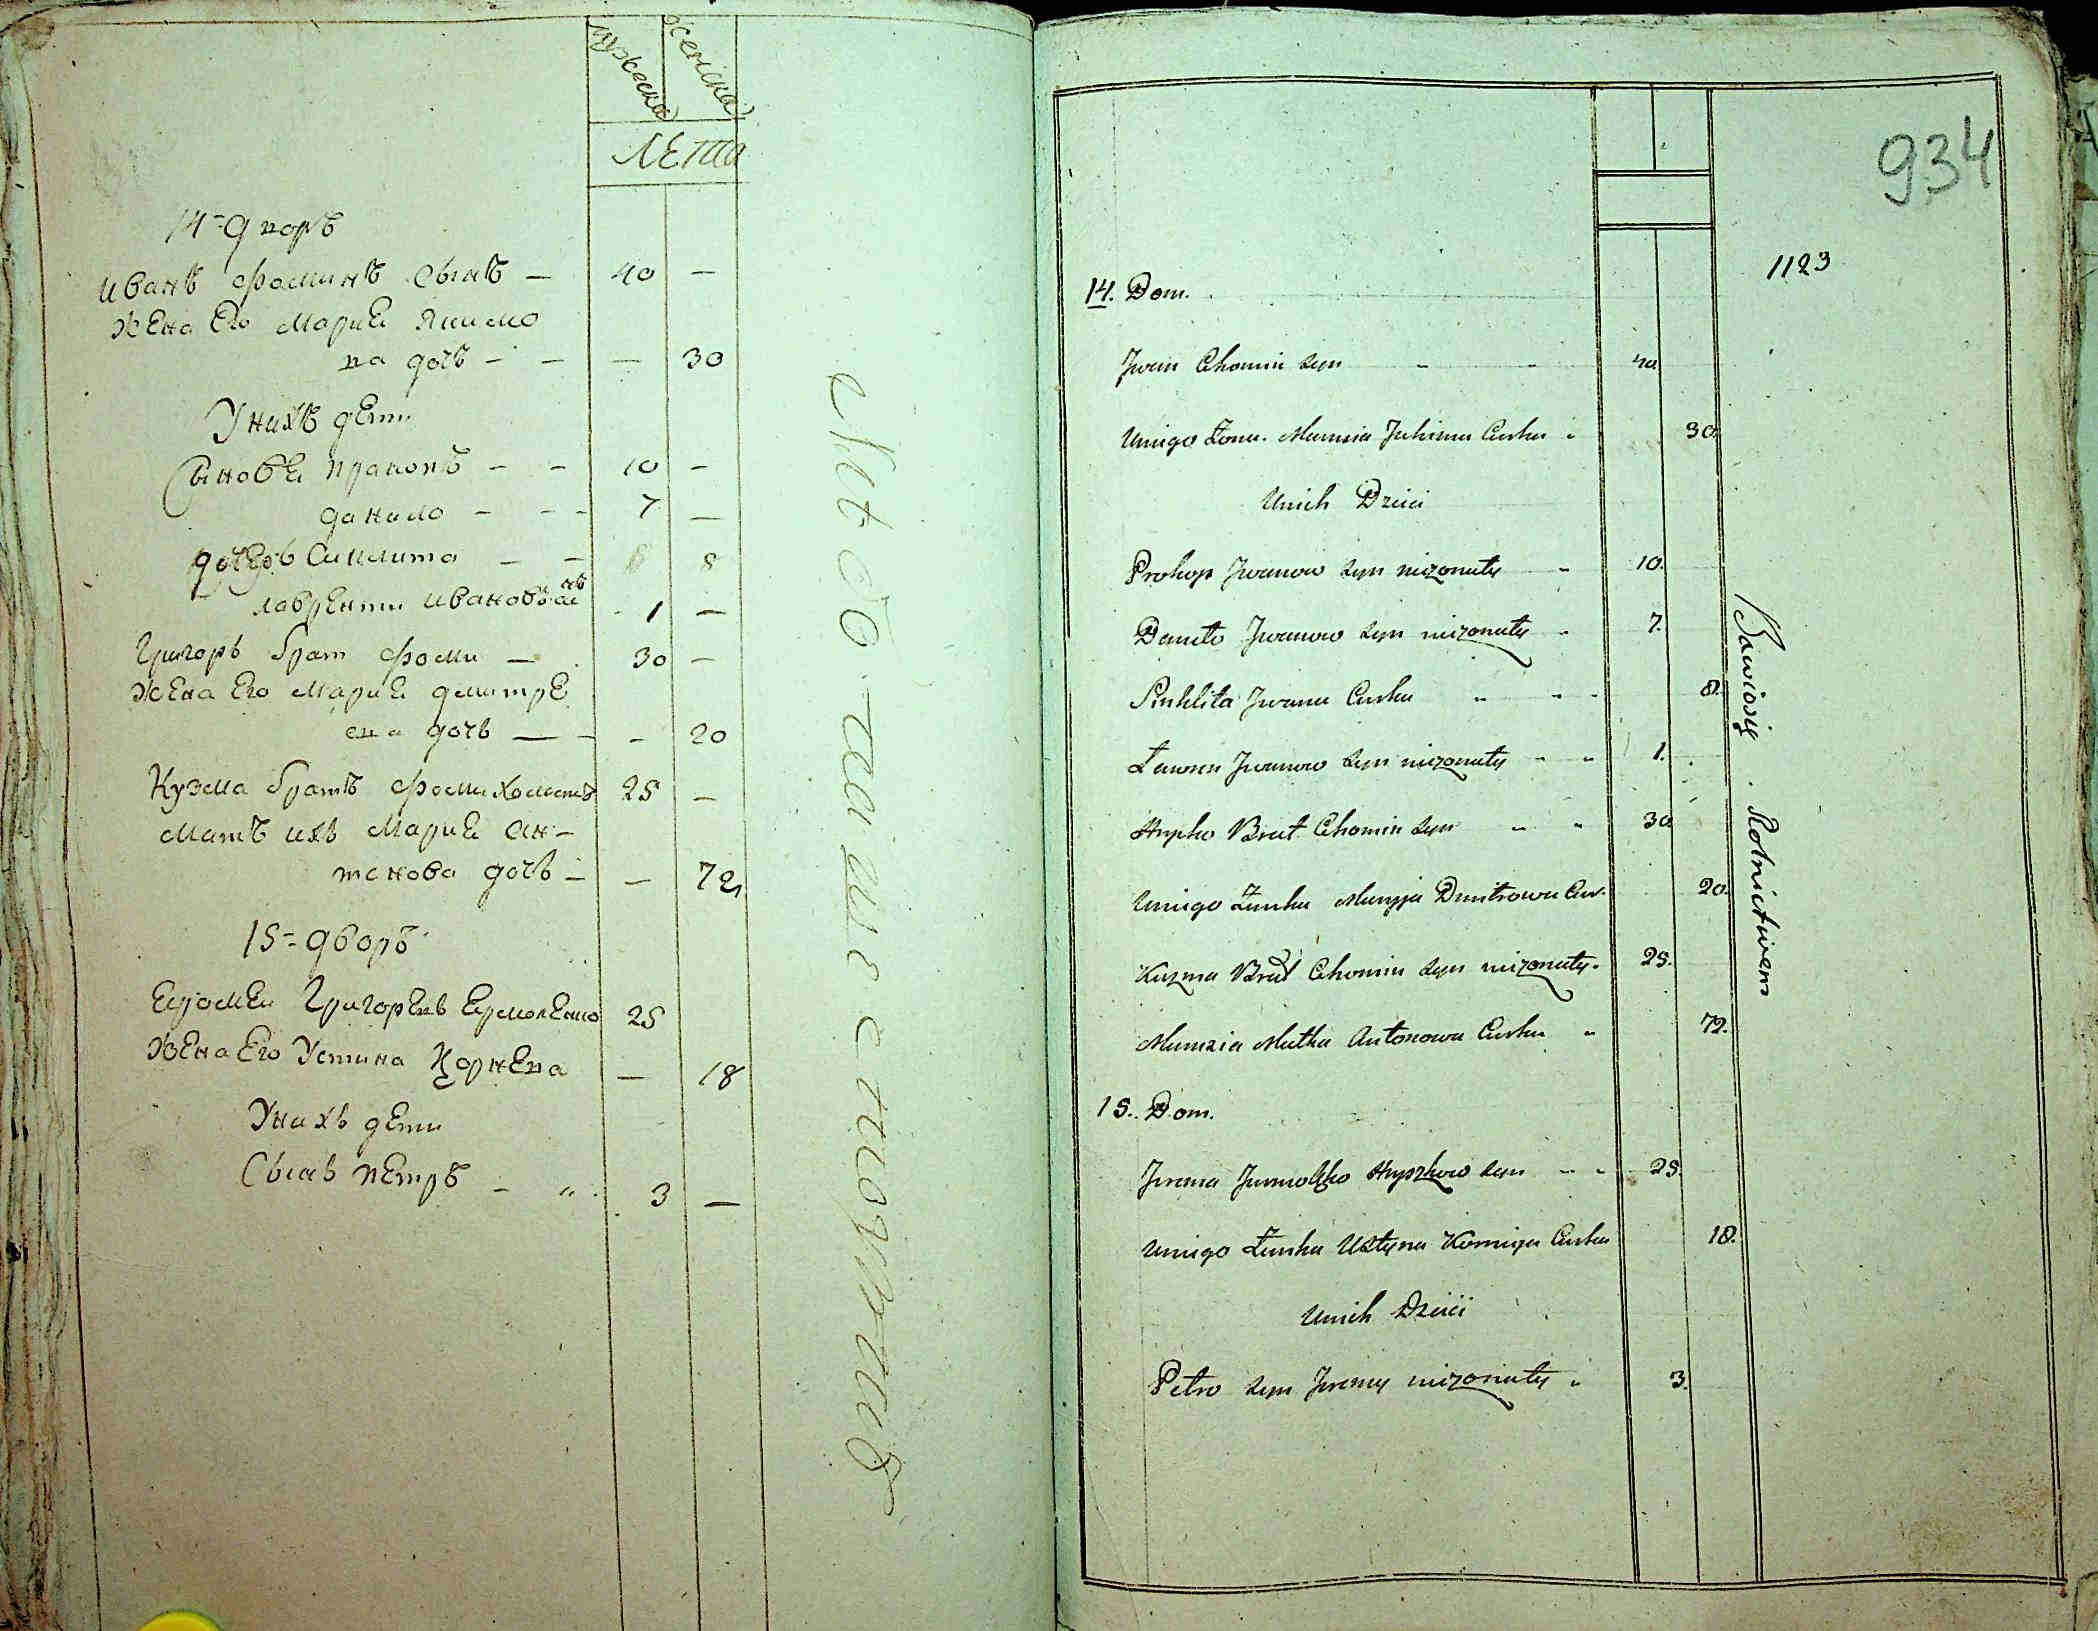 мужеска женска
лета
14-дворъ
иванъ фоминъ сынъ — 40 —
жена его марие якимо
ва дочь — — — 30
У нихъ дети
Сынове прокопъ — — 10 —
данило — — — 7 —
дочерь Синклита — — 8
лаврентий ивановъ сынъ 1 —
Григоръ брат фоми — 30 —
жена его марие дмитре
ева дочь — — — 20
Кузма братъ фоми холостъ 25 —
мать ихъ марие ан-
тонова дочь — — 72
15-дворъ
еромей Григоревъ ермоленко 25
жена его Устина Корнева — 18
У нихъ дети
Сынъ петръ — " 3 —
934
1123
14. Dom.
Jwan Chomin syn 40.
Uniego Żona Maryia Jakima Curka 30.
Unich Dzieci
Prokop Jwanow syn nieżonaty 10.
Daniło Jwanow syn nieżonaty 7.
Sinklita Jwana Curka 8.
Ławren Jwanow syn nieżonaty 1.
Hryhor Brat Chomin syn 30
Uniego Żonka Maryja Dmitrowa Cur. 20.
Kuzma Brat Chomin syn nieżonaty. 25.
Maryia Matka Antonowa Curka 72.
15. Dom.
Jrema Jermołko Hryszkow syn 25.
Uniego Żonka Ustyna Kornieja Curka 18.
Unich Dzieci
Petro syn Jremy nieżonaty 3.
Bawiosię Rolnictwem